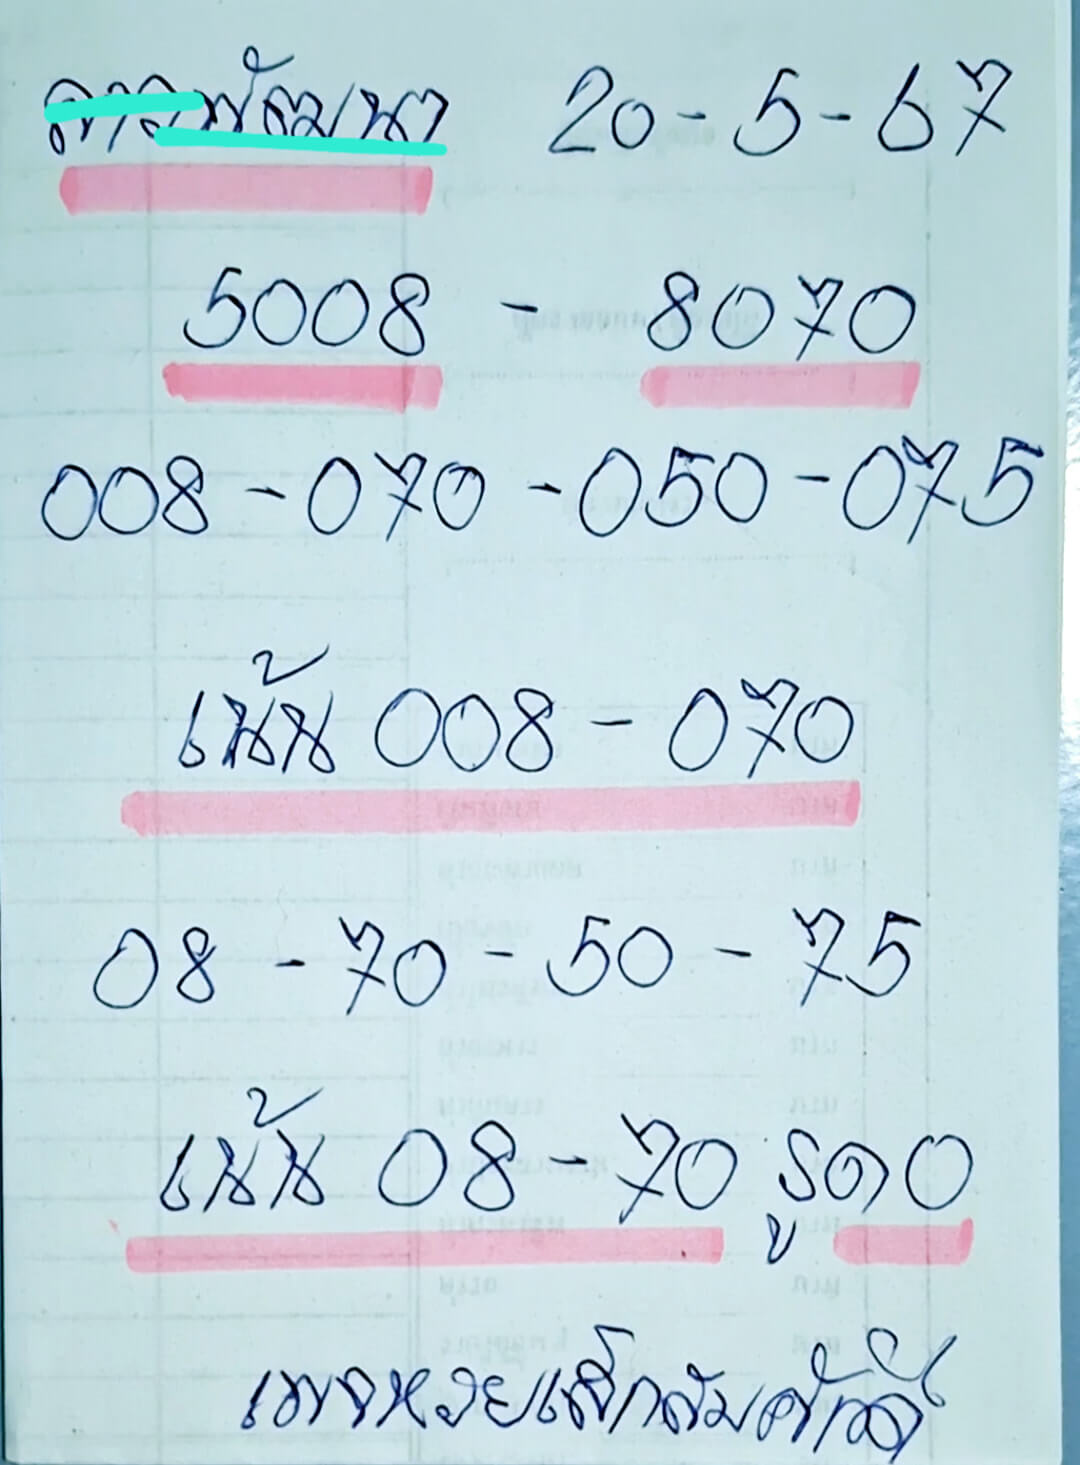 ลาวพัฒนา 20-5-67
5008 - 8070
008 - 070 - 050 - 075
เน้น 008 - 070
08 - 70 - 50 - 75
เน้น 08 - 70 รูด 0
เพจหวยเด็กสมศักดิ์